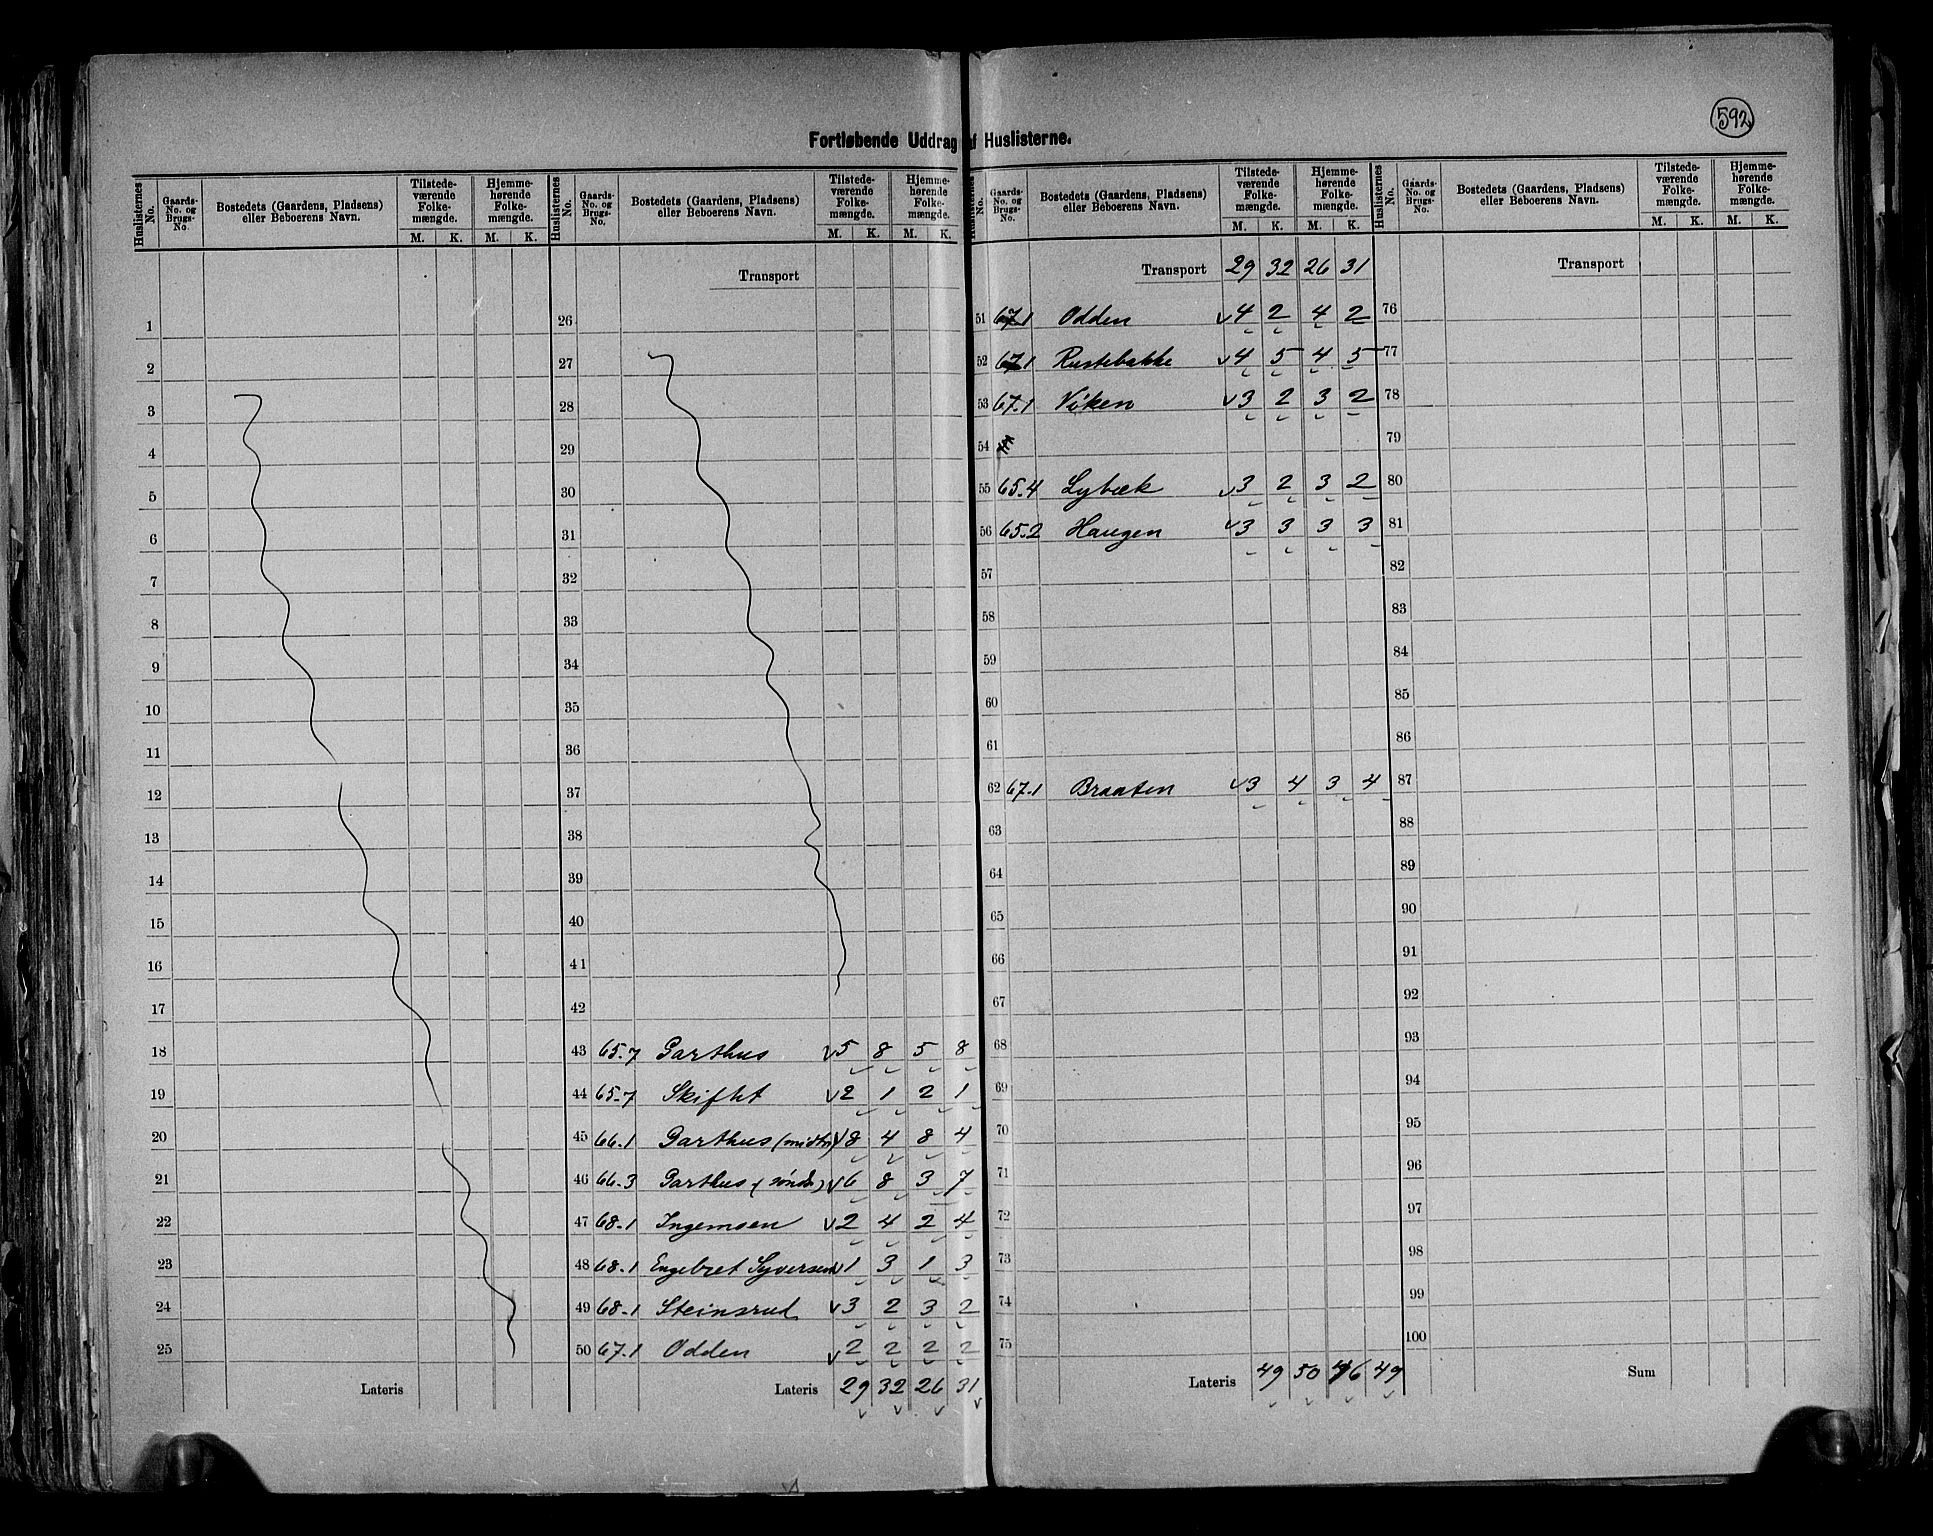 592
Fortløbende Uddrag af Huslisterne.
Huslisternes No. Gaards-No. og Brugs-No. Bostedets (Gaardens, Pladsens) eller Beboerens Navn. Tilstedeværende Folkemængde. M. K. Hjemmehørende Folkemængde. M. K.
1
2
3
4
5
6
7
8
9
10
11
12
13
14
15
16
17
18
19
20
21
22
23
24
25
Lateris
Huslisternes No. Gaards-No. og Brugs-No. Bostedets (Gaardens, Pladsens) eller Beboerens Navn. Tilstedeværende Folkemængde. M. K. Hjemmehørende Folkemængde. M. K.
Transport
26
27
28
29
30
31
32
33
34
35
36
37
38
39
40
41
42
43 65.7 Garthus 5 8 5 8
44 65.7 Skiftet 2 1 2 1
45 66.1 Garthus (midtre) 8 4 8 4
46 66.3 Garthus (søndre) 6 8 3 7
47 68.1 Ingemoen 2 4 2 4
48 68.1 Engebret Syversen 1 3 1 3
49 68.1 Steinsrud 3 2 3 2
50 67.1 Odden 2 2 2 2
Lateris 29 32 26 31
Huslisternes No. Gaards-No. og Brugs-No. Bostedets (Gaardens, Pladsens) eller Beboerens Navn. Tilstedeværende Folkemængde. M. K. Hjemmehørende Folkemængde. M. K.
Transport 29 32 26 31
51 67.1 Odden 4 2 4 2
52 67.1 Rustebakke 4 5 4 5
53 67.1 Viken 3 2 3 2
54
55 65.4 Lybæk 3 2 3 2
56 65.2 Haugen 3 3 3 3
57
58
59
60
61
62 67.1 Braaten 3 4 3 4
63
64
65
66
67
68
69
70
71
72
73
74
75
Lateris 49 50 46 49
Huslisternes No. Gaards-No. og Brugs-No. Bostedets (Gaardens, Pladsens) eller Beboerens Navn. Tilstedeværende Folkemængde. M. K. Hjemmehørende Folkemængde. M. K.
Transport
76
77
78
79
80
81
82
83
84
85
86
87
88
89
90
91
92
93
94
95
96
97
98
99
100
Sum